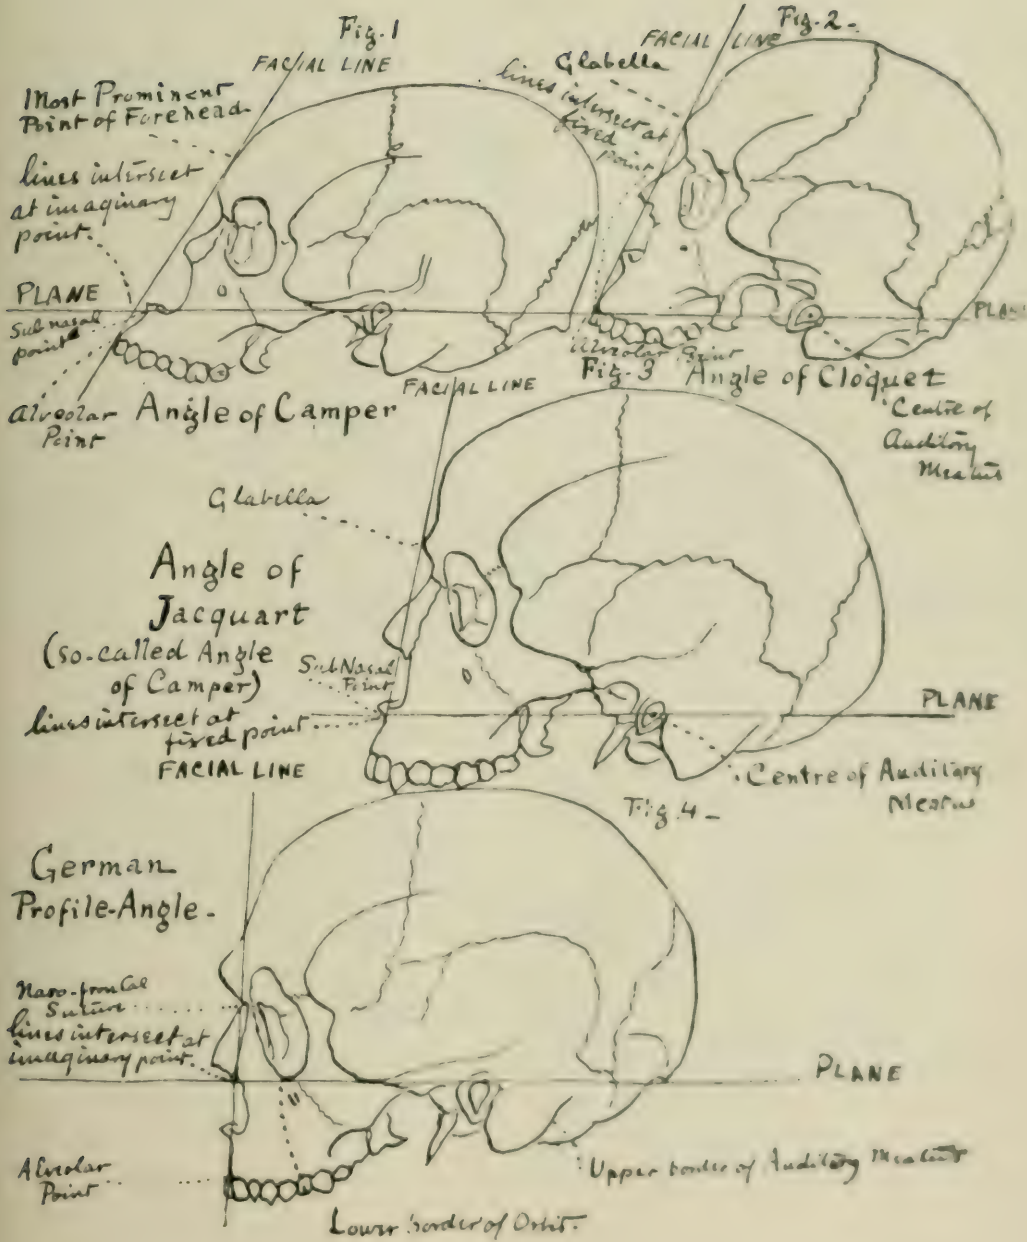 Fig. 1
FACIAL LINE
Most Prominent
Point of Forehead.
lines intersect
at imaginary
point.
PLANE
Sub nasal
point
Alveolar
Point
Angle of Camper
Fig. 2 -
FACIAL LINE
Glabella
lines intersect at
fixed
point
PLANE
Alveolar Point
Angle of Cloquet
Centre of
Auditory
Meatus
Fig. 3
FACIAL LINE
Glabella
Angle of
Jacquart
(so-called Angle
of Camper)
Sub Nasal
Point
lines intersect at
fixed point
PLANE
Centre of Auditory
Meatus
FACIAL LINE
Fig. 4 -
German
Profile-Angle -
Naso-frontal
Suture
lines intersect at
imaginary point.
PLANE
Alveolar
Point
Upper border of Auditory Meatus
Lower border of Orbit.